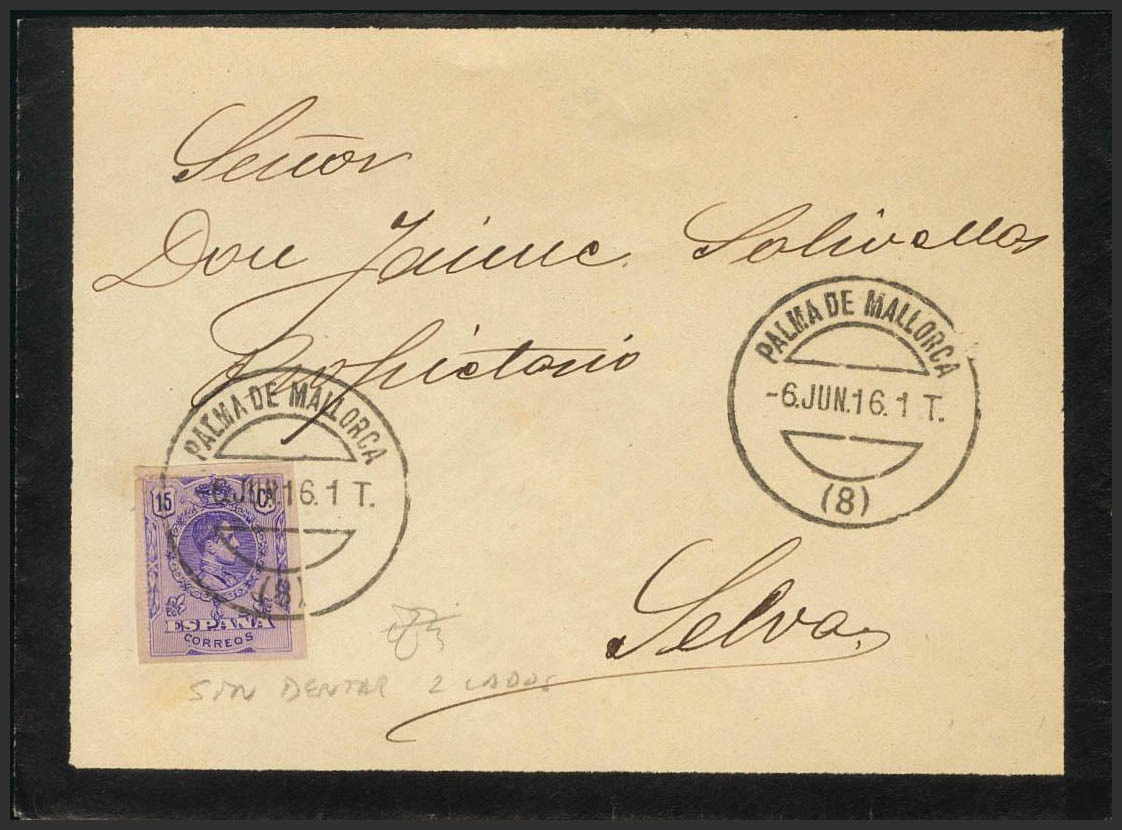 Señor
Don Jaime Solivellas
Propietario
PALMA DE MALLORCA
-6.JUN.16.1 T.
(8)
PALMA DE MALLORCA
-6.JUN.16.1 T.
(8)
15 Cs
ESPAÑA
CORREOS
Selva
SIN DENTAR 2 LADOS